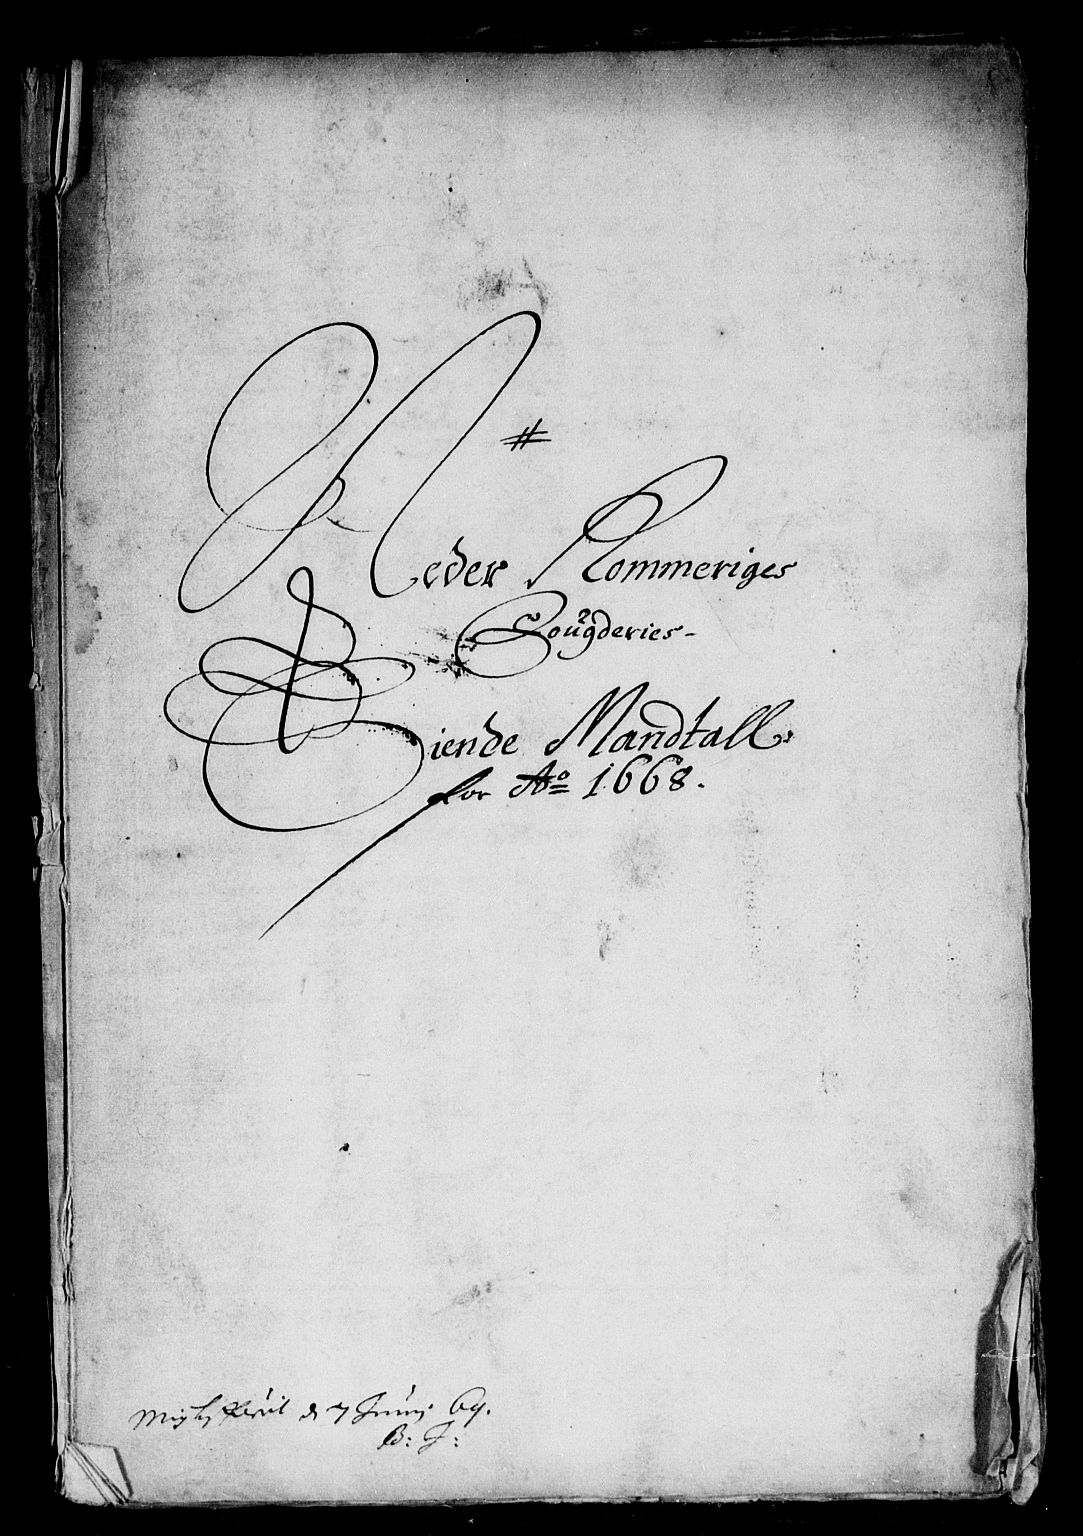 #
Neder Rommeriges
Fougderies-
Tiende Mandtall
for Ao 1668.
d 7 Junij 69.
B: J: